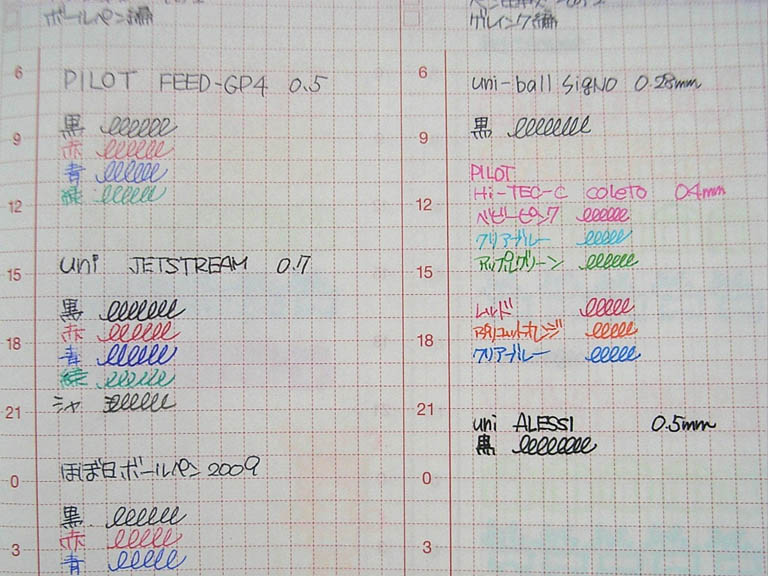 ボールペン編
PILOT FEED-GP4 0.5
黒
赤
青
緑
uni JETSTREAM 0.7
黒
赤
青
緑
シャ
ほぼ日ボールペン2009
黒
赤
青
6
9
12
15
18
21
0
3
ゲルインク編
uni-ball SigNO 0.28mm
黒
PILOT
Hi-TEC-C coleto 04mm
ベビーピンク
クリアブルー
アップルグリーン
レッド
アプリコットオレンジ
クリアブルー
uni ALESSI 0.5mm
黒
6
9
12
15
18
21
0
3